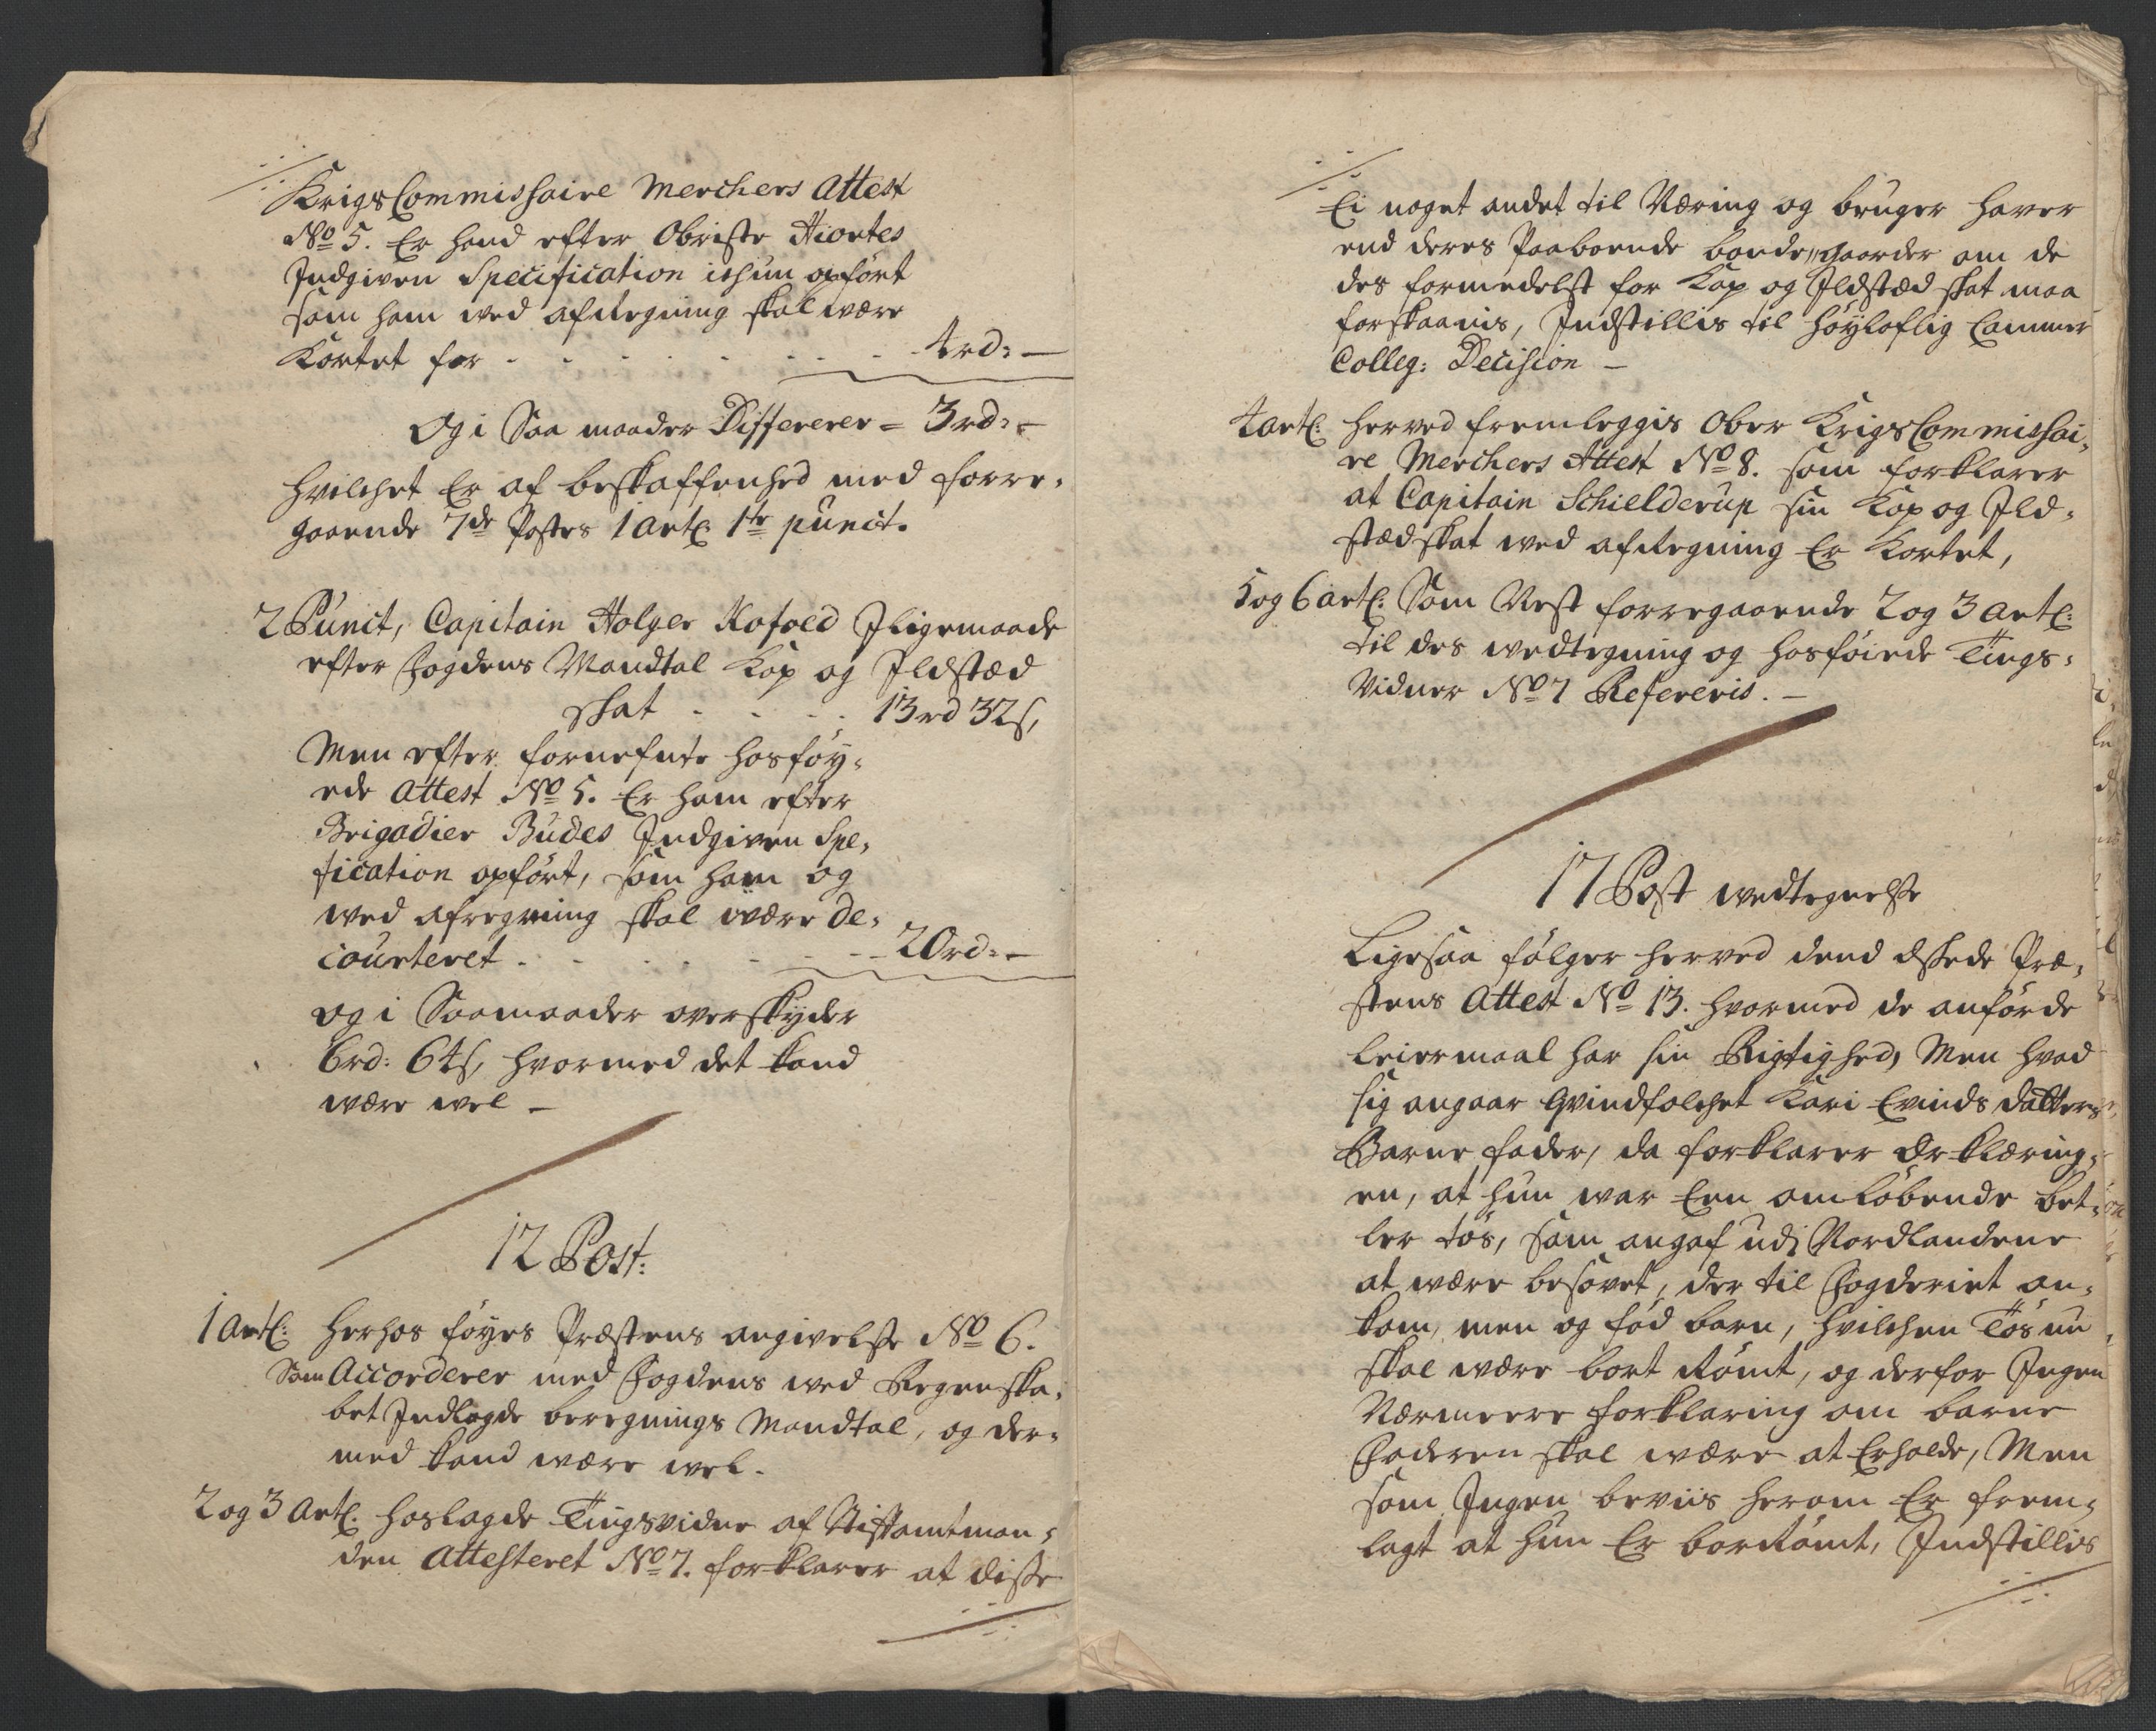 KrigsCommissaire Merchers Attest
No 5. Er hand efter Obriste Hiortes
Indgiven Specification ichun opført
som ham ved afregning skal være
Kortet for . . . . . . . 4rd: —
Og i Saa maader Differerer = 3rd: —
hvilchet Er af beskaffenhed med forre-
gaaende 7de Postes 1 Artl: 1te punct.
2 Punct, Capitain Holger Kofoed Iligemaade
efter Fogdens Mandtal Kop og Ildsted
skat . . . . 13rd 32s,
Men efter fornefnte hosføy-
ede Attest No 5. Er ham efter
Brigadier Budes Indgiven Spe-
fication opført, som ham og
ved afregning skal være de-
courteret . . . . . . 20rd: —
og i Saamaader overskyder
6rd: 64s, hvormed det kand
være vel —
12 Post:
1 Artl: herhos føyes Præstens angivelse No 6.
Som Accorderer med Fogdens ved Regenska-
bet Indlagde beregnings Mandtal, og der-
med kand være vel.
2 og 3 Artl: hoslagde Tingsvidne af Stiftamtman-
den Attesteret No 7. forklarer at disse
Ei noget andet til Næring og bruger haver
end deres Paaboende bonde,,gaarder om de
des formedelst for Kop og Ildsted skat maa
forskaanis, Indstillis til høyloflig Cammer
Colleg: Decision —
4 Artl: herved fremleggis Ober KrigsCommissai-
re Merchers Attest No 8. som forklarer
at Capitain Schielderup sin Kop og Ild-
stedskat ved afregning Er Kortet,
5 og 6 Artl: Som Nest forregaaende 2 og 3 Artl:
til des vedtegning og hosføiede Tings-
Vidner No 7 Refereris. —
17 Post vedtegnelse
Ligesaa følger herved dend Præ-
stens Attest No 13. hvormed de anførde
leiermaal har sin Rigtighed, Men hvad
sig angaar qvindfolchet Kari Evinds datters
Barne fader, da forklarer Erklæring-
en, at hun var Een omløbende bet-
ler tøs, som angaf udj Nordlandene
at være besovet, der til Fogderiet an-
kom, men og fød barn, hvilchen Tøs nu
skal være bort Rømt, og derfor Ingen
Nærmeere forklaring om barne
Faderen skal være at Erholde, Men
som Ingen beviis herom Er frem-
lagt at hun Er bortRømt, Indstillis